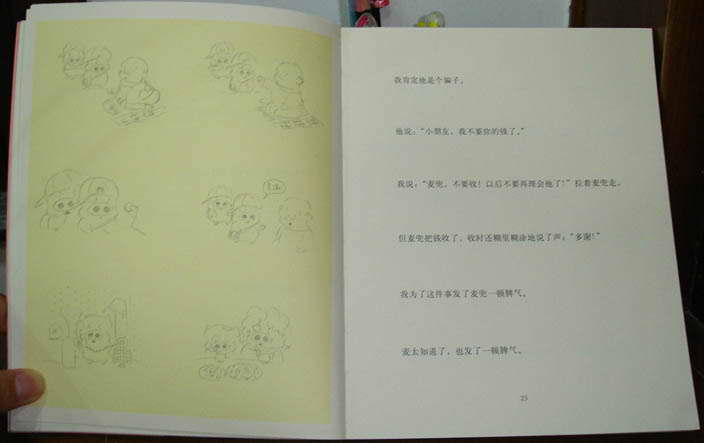 我肯定他是个骗子。
他说：“小朋友，我不要你的钱了。”
我说：“麦兜，不要收！以后不要再理会他了！”拉着麦兜走。
但麦兜把钱收了，收时还糊里糊涂地说了声：“多谢！”
我为了这件事发了麦兜一顿脾气。
麦太知道了，也发了一顿脾气。
23